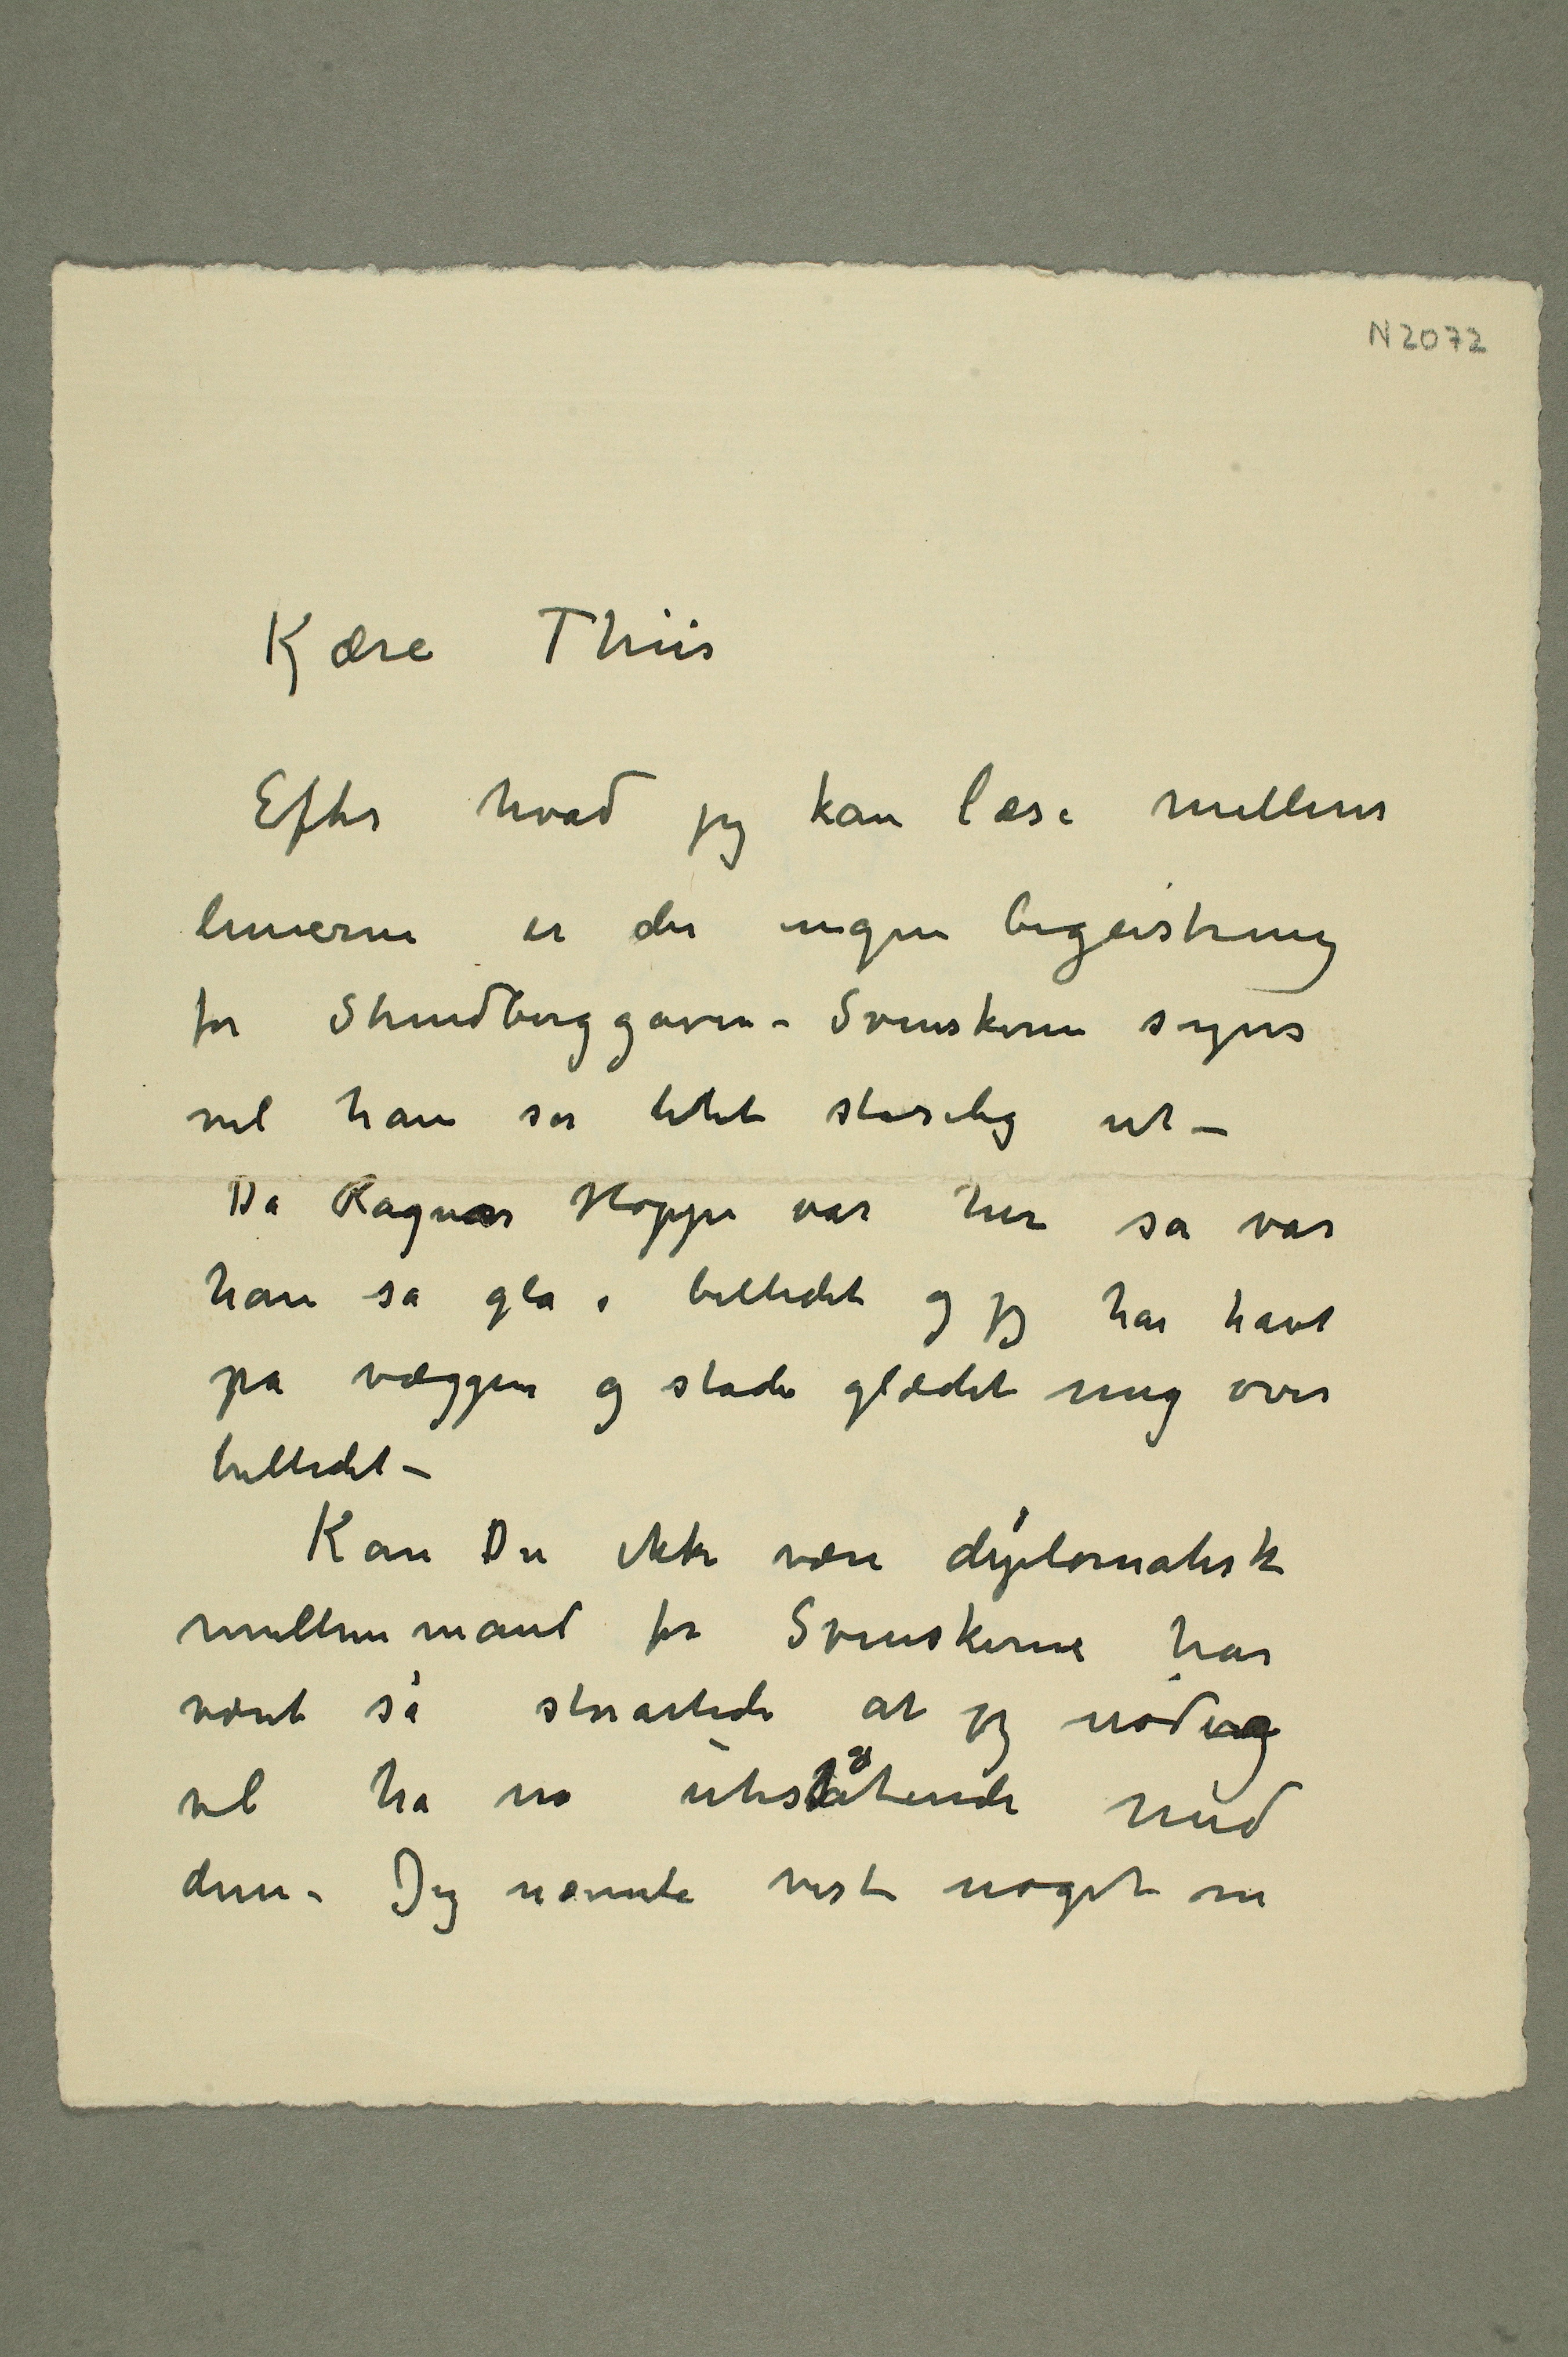 N 2072
Kjære Thiis
Efter hvad jeg kan læse mellem
linierne er der ingen begeistring
for Strindberggaven – Svenskerne synes
vel han ser litet staselig ut –
Da Ragnar Hoppe var her så var
han så gla i billedet og jeg har havt
på væggen og stadi glædet mig over
billedet –
Kan Du ikke være diplomatisk
mellemmand for Svenskerne har
været så storartede at jeg nødig
vil ha no utestående med
dem – Jeg nævnte visst noget om